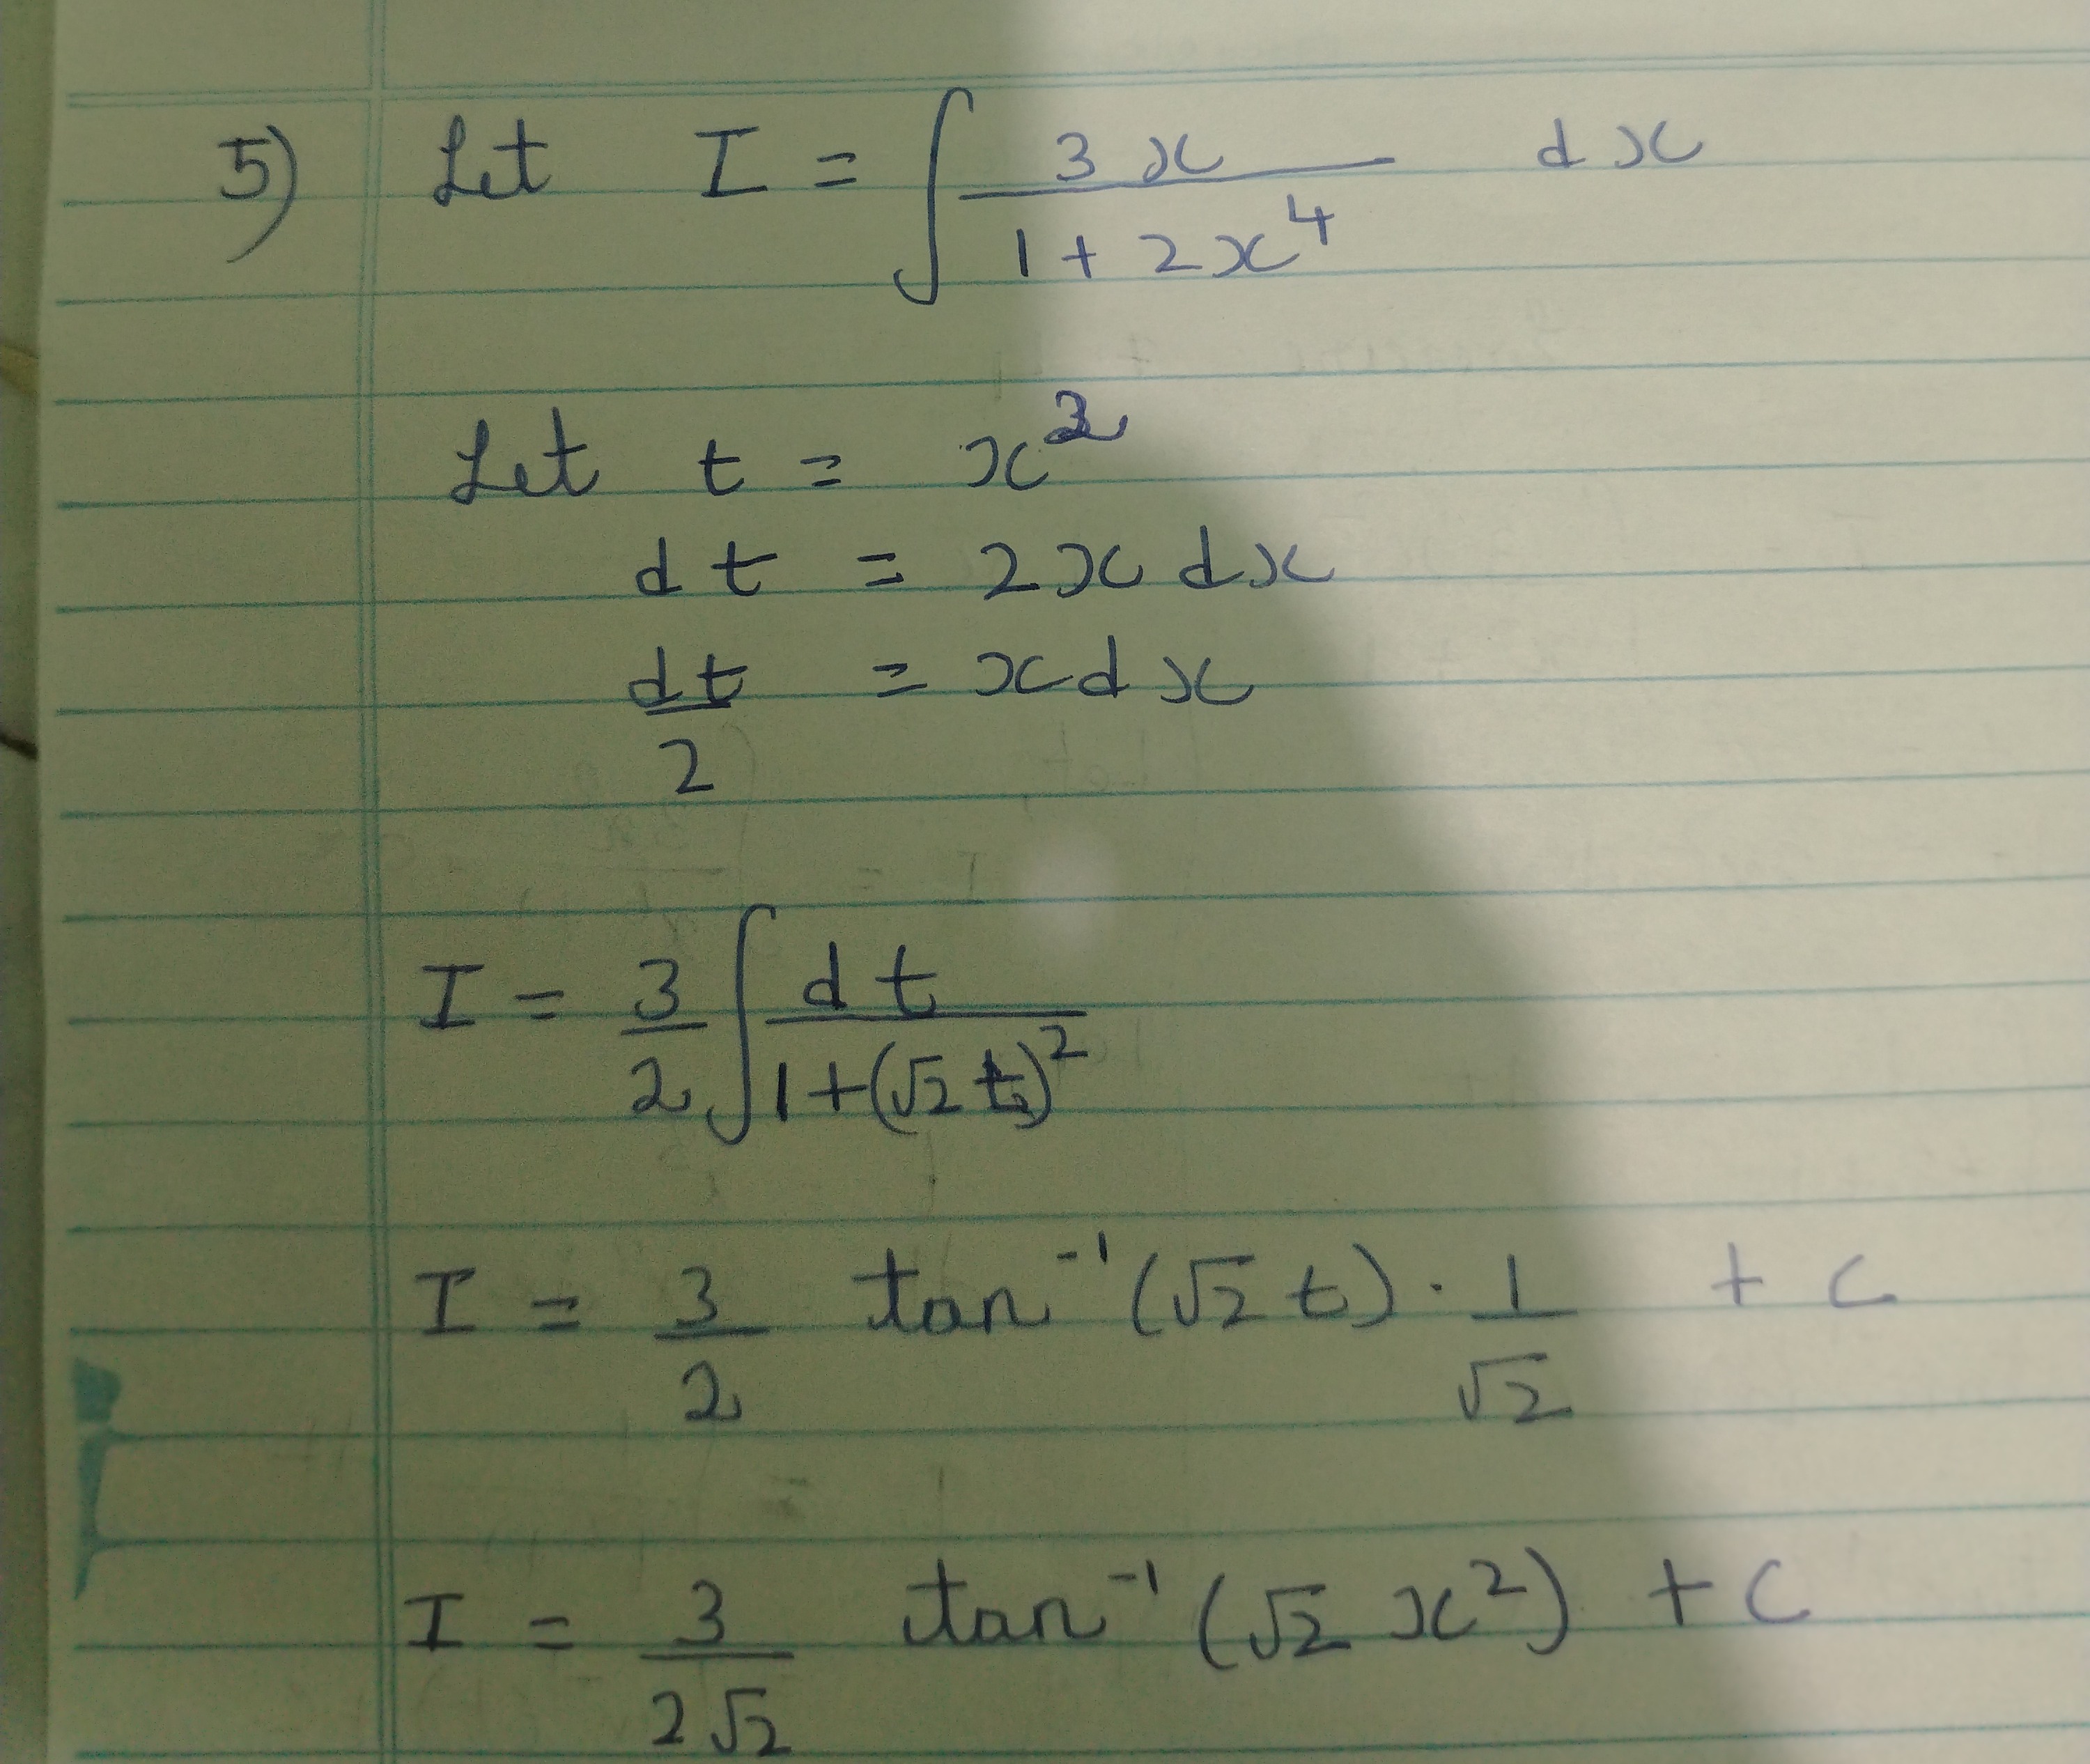 5) Let I = ∫ 3x / (1 + 2x⁴) dx
Let t = x²
dt = 2x dx
dt/2 = x dx
I = 3/2 ∫ dt / (1+(√2 t)²)
I = 3/2 tan⁻¹(√2 t) · 1/√2 + c
I = 3/(2√2) tan⁻¹(√2 x²) + c